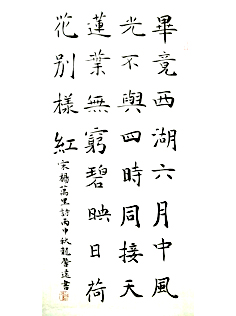 畢竟西湖六月中風
光不與四時同接天
蓮葉無窮碧映日荷
花別樣紅
宋楊萬里詩丙申秋龍